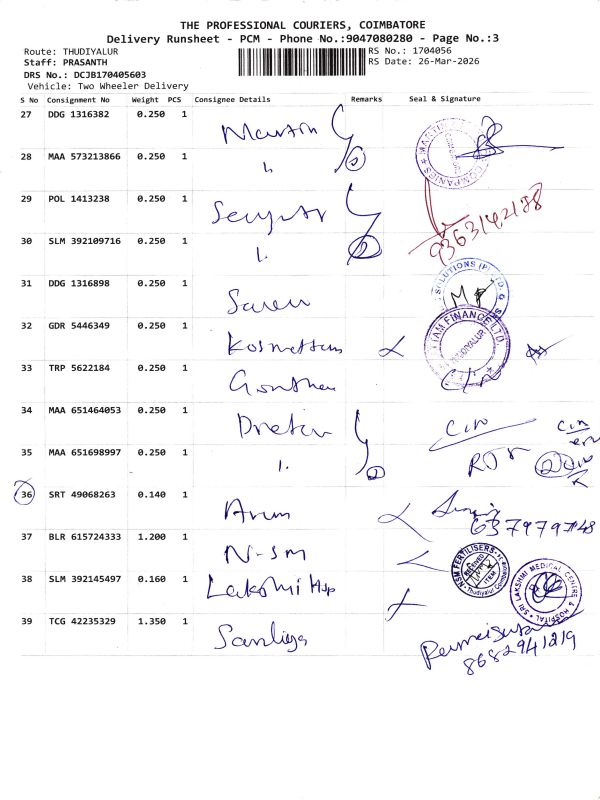 THE PROFESSIONAL COURIERS, COIMBATORE
Delivery Runsheet - PCM - Phone No.:9047080280 - Page No.:3
Route: THUDIYALUR
RS No.: 1704056
Staff: PRASANTH
RS Date: 26-Mar-2026
DRS No.: DCJB170405603
Vehicle: Two Wheeler Delivery
S No Consignment No Weight PCS Consignee Details Remarks Seal & Signature
27 DDG 1316382 0.250 1 Martin
28 MAA 573213866 0.250 1
29 POL 1413238 0.250 1
9363142138
30 SLM 392109716 0.250 1
31 DDG 1316898 0.250 1 Saren
SOLUTIONS (P) LTD.
32 GDR 5446349 0.250 1 Kosmattam
FINANCE LTD.
THUDIYALUR
33 TRP 5622184 0.250 1
34 MAA 651464053 0.250 1
35 MAA 651698997 0.250 1
36 SRT 49068263 0.140 1 Arun
37 BLR 615724333 1.200 1 N-Sm
NSM FERTILISERS
38 SLM 392145497 0.160 1 Lakshmi Hsp
SRI LAKSHMI MEDICAL CENTRE & HOSPITAL
39 TCG 42235329 1.350 1
8682941219